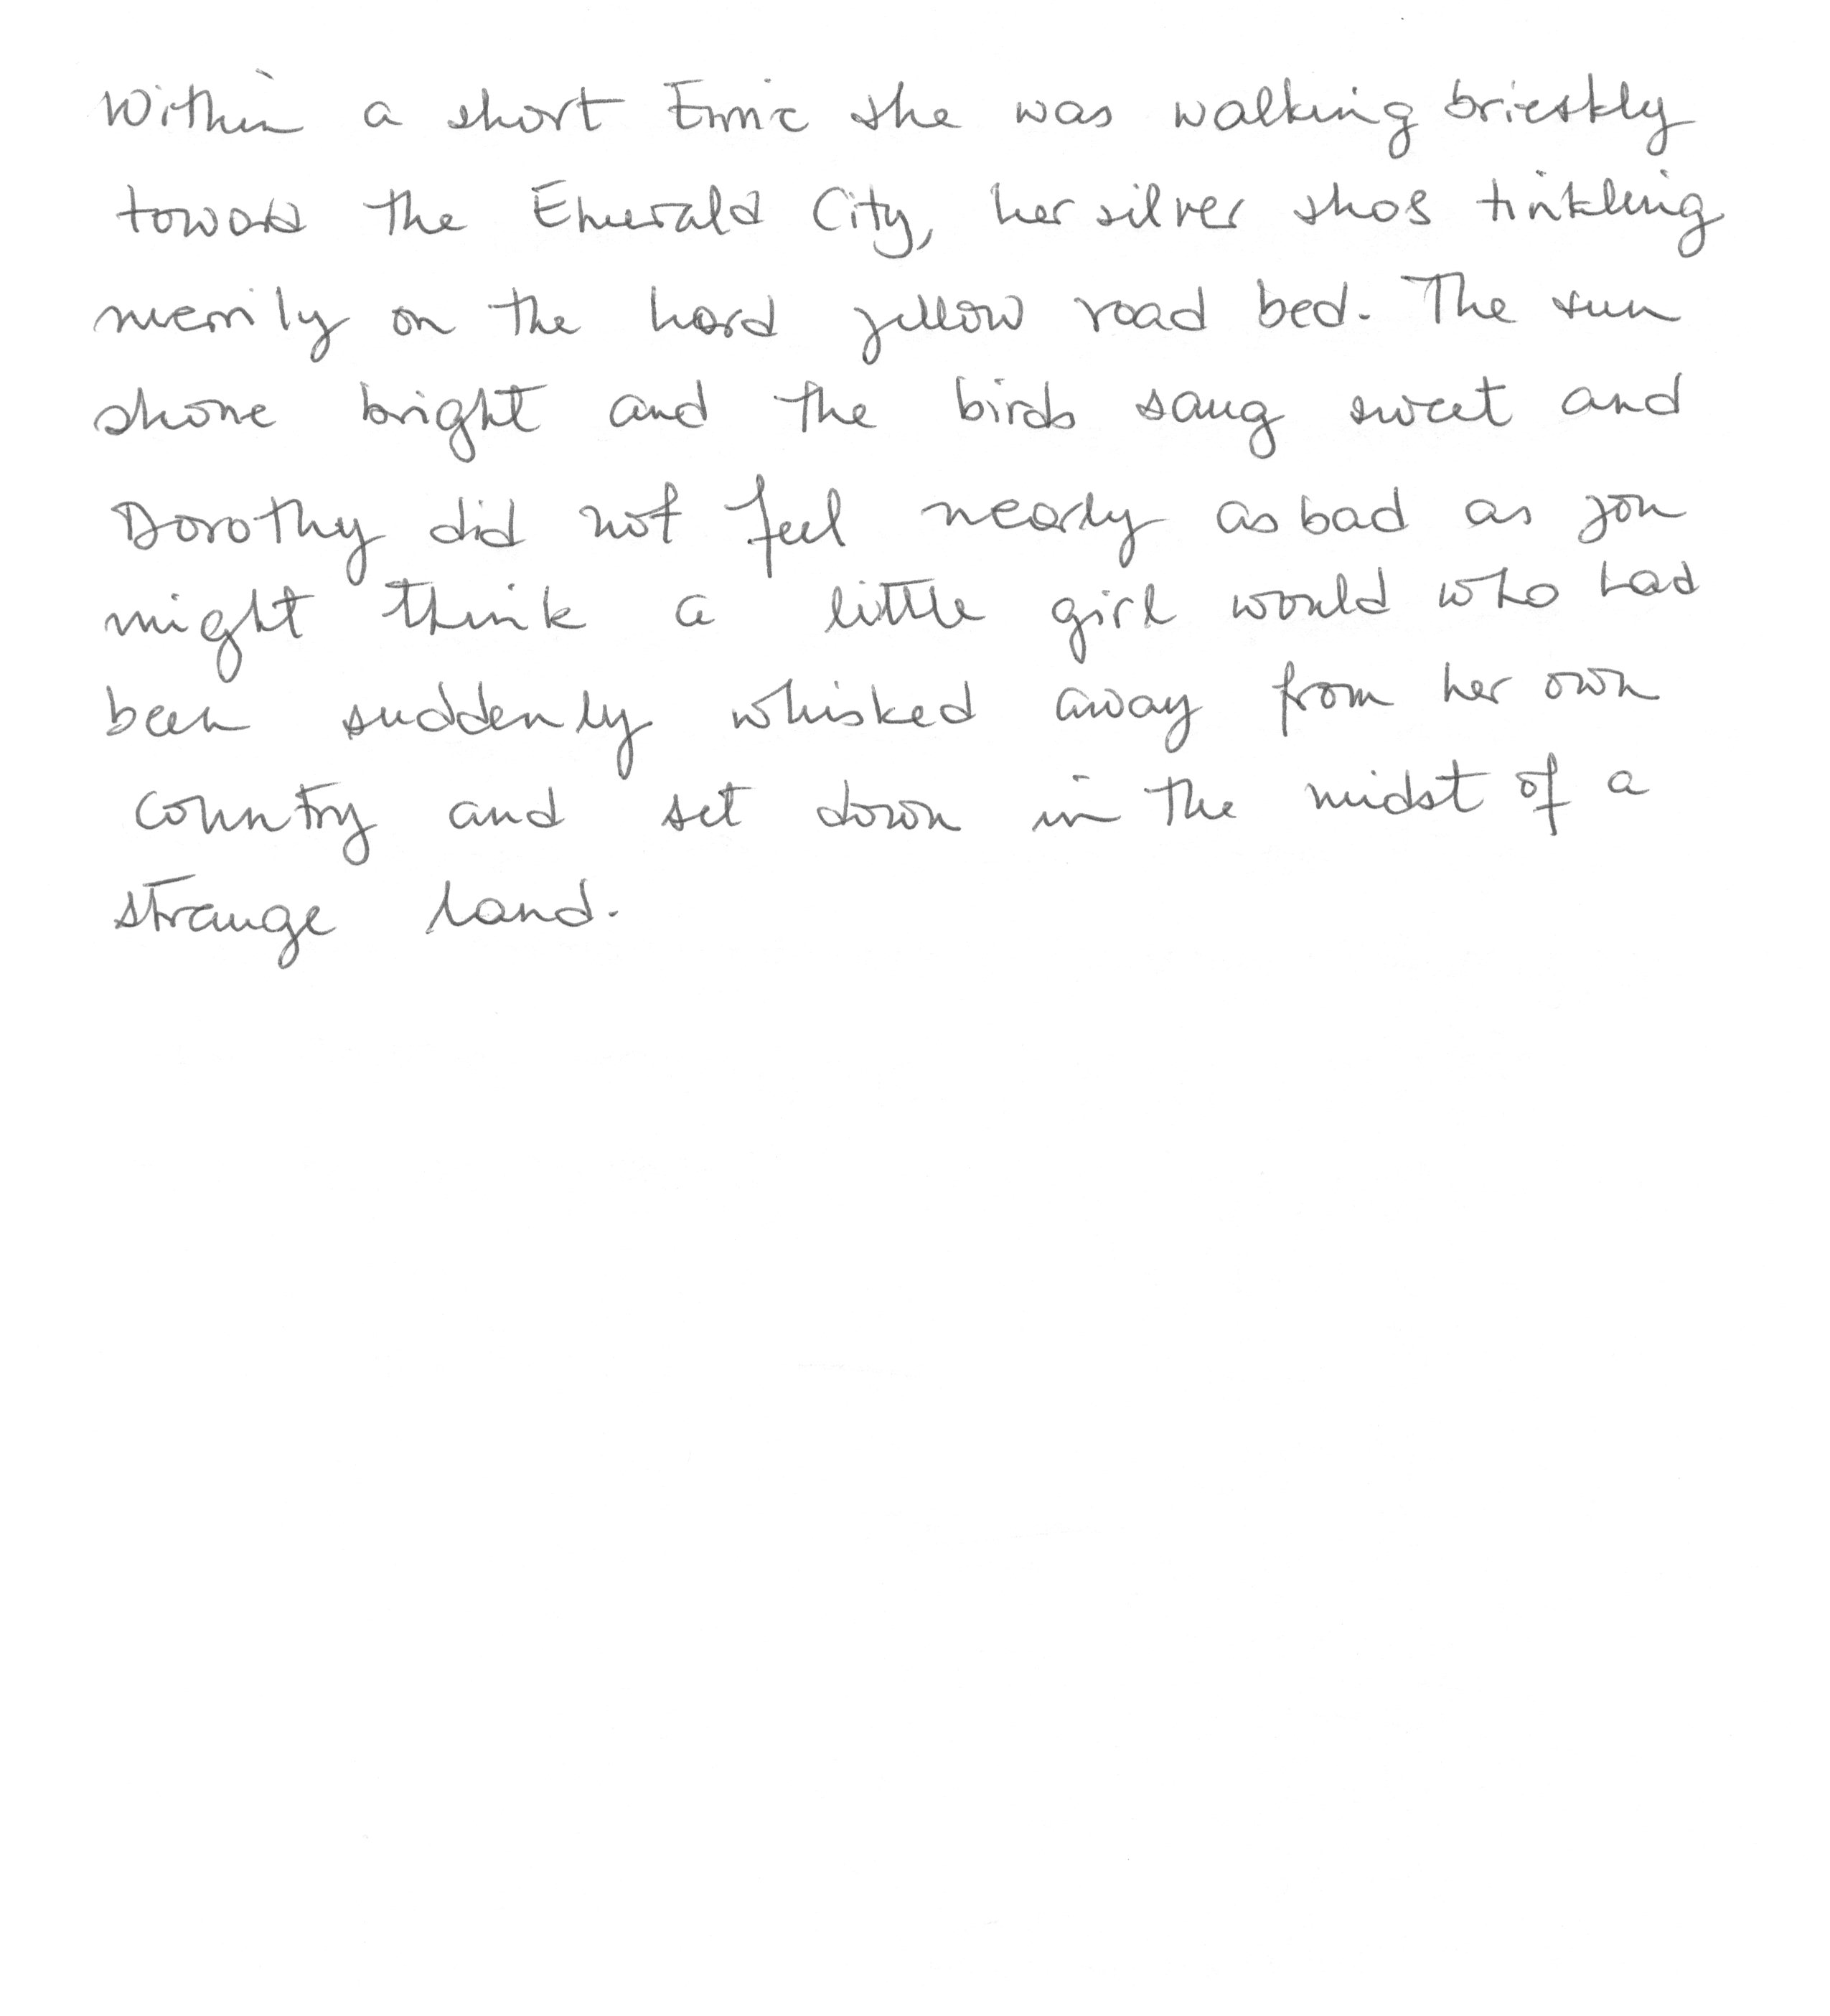 Within a short time she was walking briestkly
toward the Emerald City, her silver shos tinkling
merrily on the hard yellow road bed. The sun
shone bright and the birds sang sweet and
Dorothy did not feel nearly as bad as you
might think a little girl would who had
been suddenly whisked away from her own
country and set down in the midst of a
strange land.